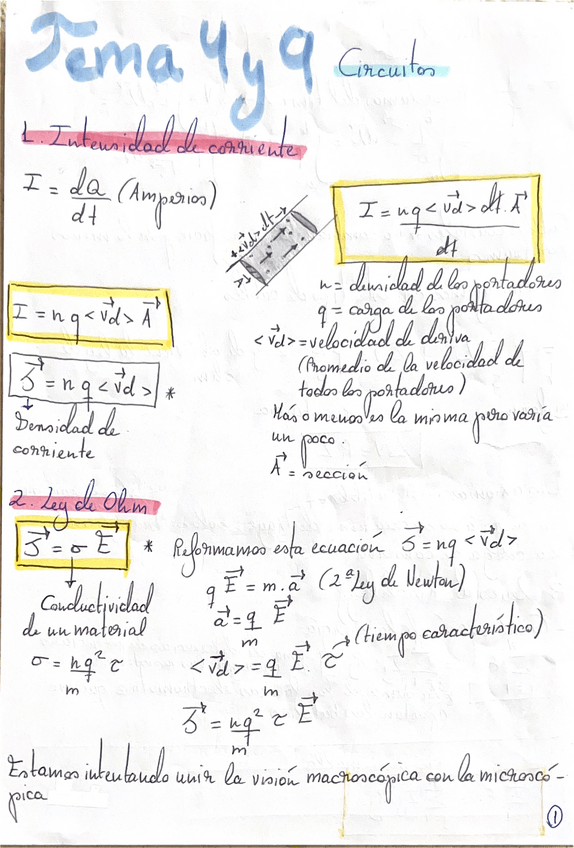 Tema 4 y 9 Circuitos
1. Intensidad de corriente
I = dQ/dt (Amperios)
+<v⃗d> dt→
I = nq <v⃗d> dt. A⃗ / dt
n = densidad de los portadores
q = carga de los portadores
I = n q <v⃗d> A⃗
<v⃗d> = velocidad de deriva
(Promedio de la velocidad de
todos los portadores)
J⃗ = n q <v⃗d> *
Densidad de
corriente
Más o menos es la misma pero varía
un poco.
A⃗ = sección
2. Ley de Ohm
J⃗ = σ E⃗ * Reformamos esta ecuación J⃗ = nq <v⃗d>
q E⃗ = m . a⃗ (2ª Ley de Newton)
Conductividad
de un material
a⃗ = q/m E⃗
σ = nq²/m τ
<v⃗d> = q/m E⃗. τ⃗ (tiempo característico)
J⃗ = nq²/m τ E⃗
Estamos intentando unir la visión macroscópica con la microscó-
pica
1